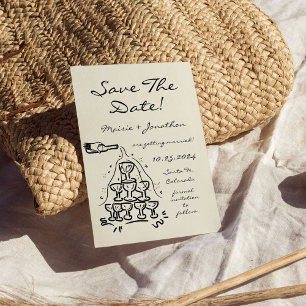 Save The
Date!
Maisie + Jonathon
are getting married!
10.23.2024
Santa Fe,
Colorado
formal
invitation to
follow